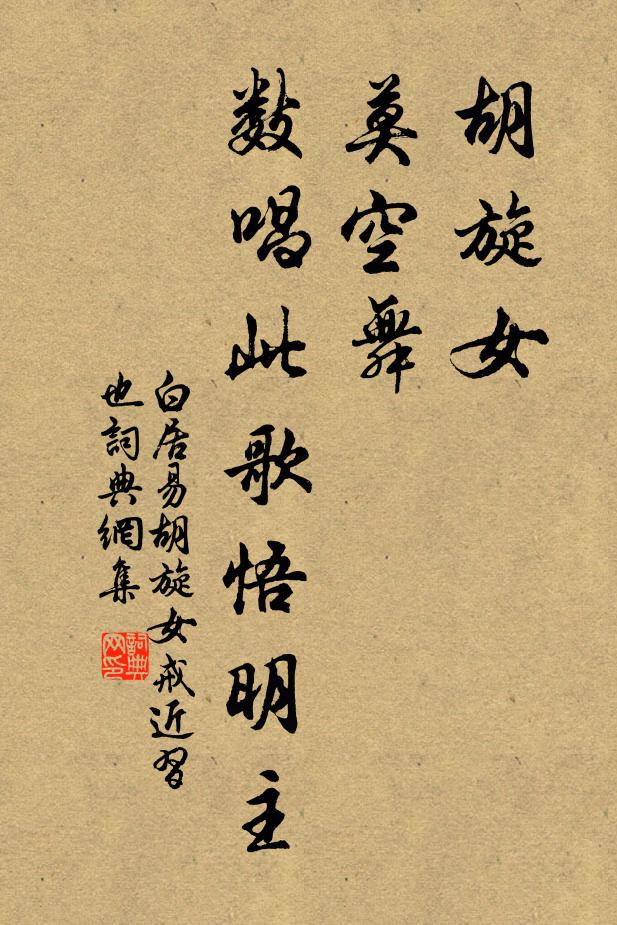 胡旋女
莫空舞
数唱此歌悟明主
白居易胡旋女戒近習
也詞典網集
詞典网印